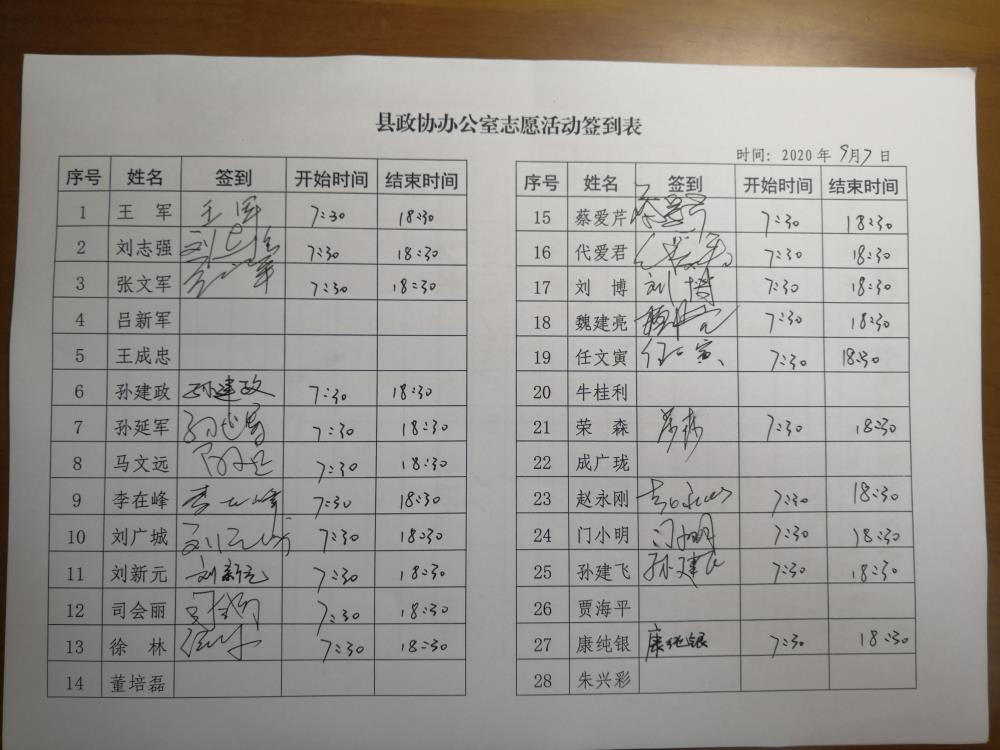 县政协办公室志愿活动签到表
时间：2020年9月7日
序号 姓名 签到 开始时间 结束时间
1 王 军 王军 7:30 18:30
2 刘志强 刘志强 7:30 18:30
3 张文军 7:30 18:30
4 吕新军
5 王成忠
6 孙建政 孙建政 7:30 18:30
7 孙延军 孙延军 7:30 18:30
8 马文远 7:30 18:30
9 李在峰 李在峰 7:30 18:30
10 刘广城 刘广城 7:30 18:30
11 刘新元 刘新元 7:30 18:30
12 司会丽 司会丽 7:30 18:30
13 徐 林 徐林 7:30 18:30
14 董培磊
序号 姓名 签到 开始时间 结束时间
15 蔡爱芹 蔡爱芹 7:30 18:30
16 代爱君 代爱君 7:30 18:30
17 刘 博 刘博 7:30 18:30
18 魏建亮 7:30 18:30
19 任文寅 任文寅 7:30 18:30
20 牛桂利
21 荣 森 荣森 7:30 18:30
22 成广珑
23 赵永刚 赵永刚 7:30 18:30
24 门小明 门小明 7:30 18:30
25 孙建飞 孙建飞 7:30 18:30
26 贾海平
27 康纯银 康纯银 7:30 18:30
28 朱兴彩